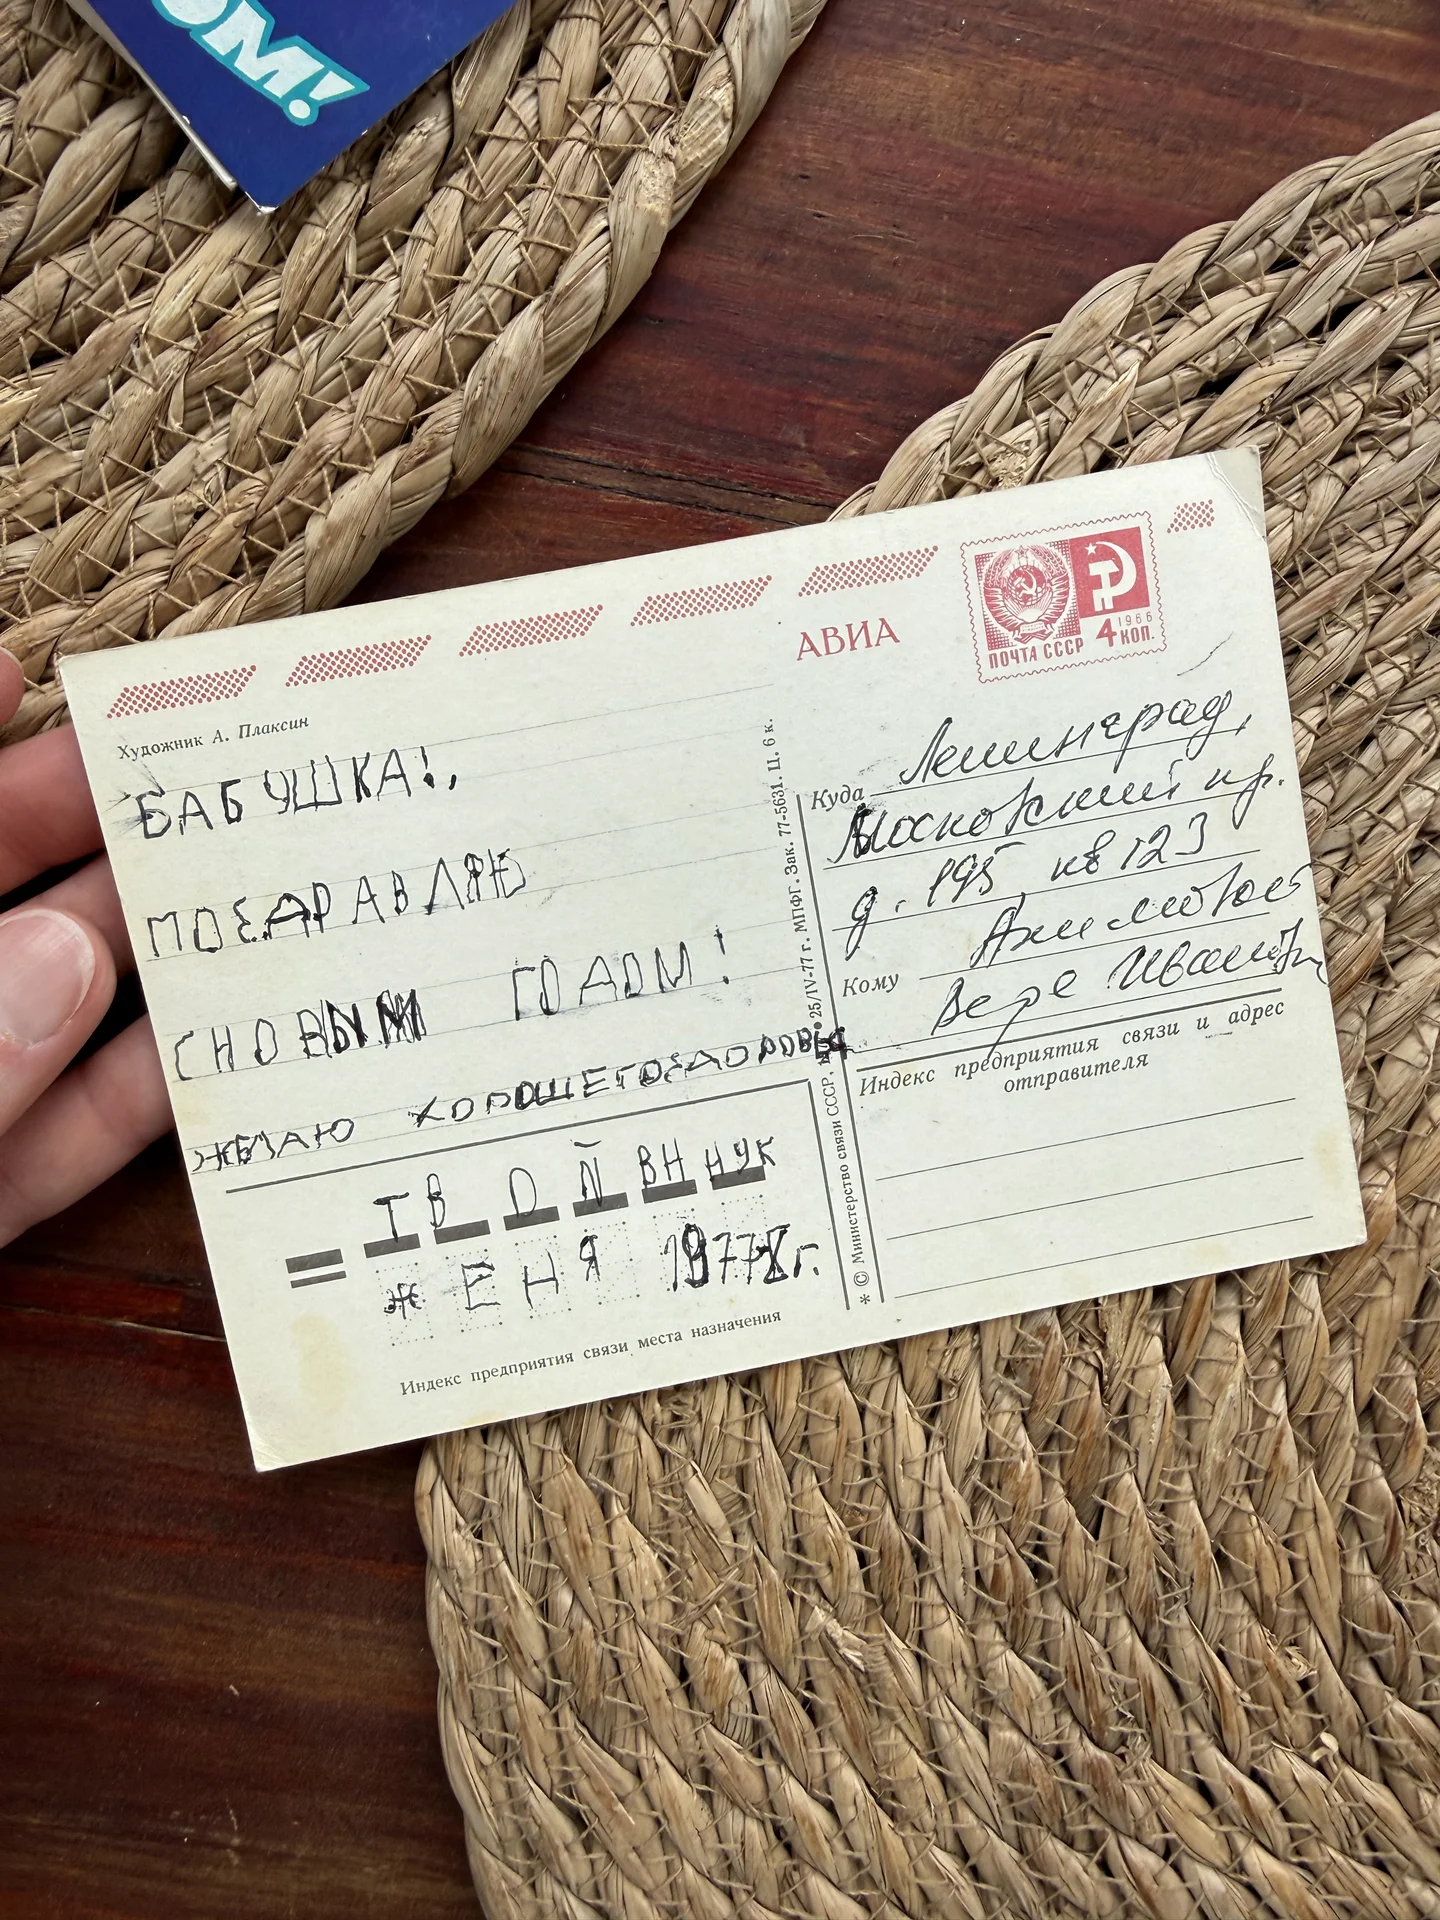 ОМ!
АВИА
ПОЧТА СССР 4 1966 КОП.
Художник А. Плаксин
БАБУШКА!,
ПОЕДРАВЛЯЮ
СНОВЫМ ГОДОМ!
ЖЕЛАЮ ХОРОШЕГОЗДОРОВЬЯ
ТВОЙ ВННУК
ЖЕНЯ 1978г.
Индекс предприятия связи места назначения
* © Министерство связи СССР, 25/IV-77 г. МПФГ. Зак. 77-5631. Ц. 6 к.
Куда Ленинград,
Московский пр.
д. 195, кв 123
Кому
Вере Ивановне
Индекс предприятия связи и адрес
отправителя